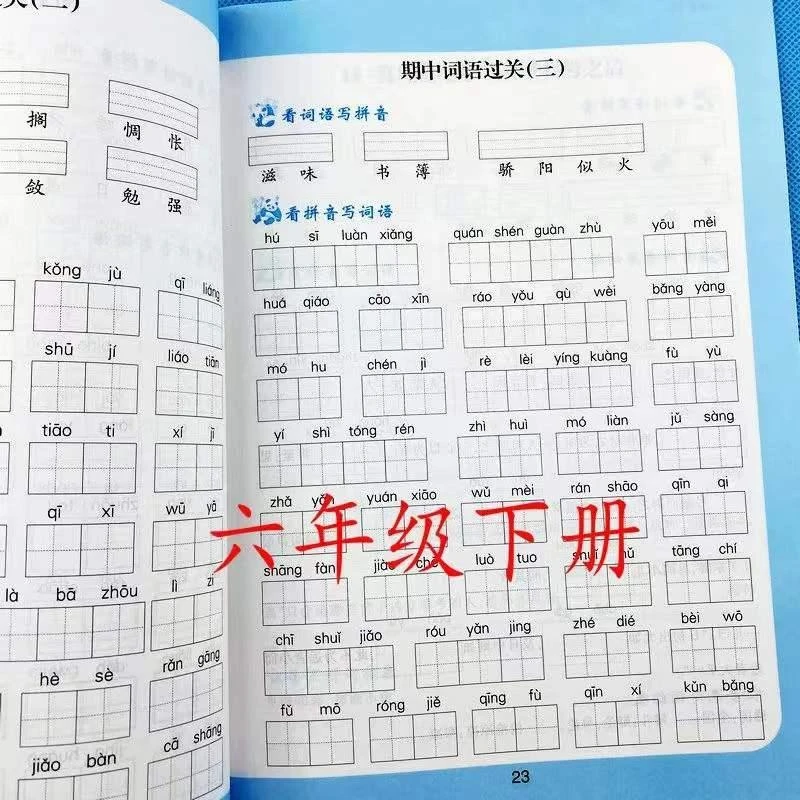 关(二)
搁 惆 怅
敛 勉 强
kǒng jù qī liáng
shū jí liáo tiān
tiāo ti xí jī
qī xī wū yā
là bā zhōu lì zi
hè sè rǎn gāng
jiǎo bàn cā shāng
期中词语过关(三)
看词语写拼音
滋 味 书 簿 骄 阳 似 火
看拼音写词语
hú sī luàn xiǎng quán shén guàn zhù yōu měi
huá qiáo cāo xīn ráo yǒu qù wèi bǎng yàng
mó hu chén jì rè lèi yíng kuàng fù yù
yí shì tóng rén zhì huì mó liàn jǔ sàng
zhǎ yǎn yuán xiāo wǔ mèi rán shāo qīn qi
六年级下册
shāng fàn jiào luò tuo shuǐ tāng chí
chī shuǐ jiǎo róu yǎn jing zhé dié bèi wō
fǔ mō róng jiě qīng fù qīn xí kǔn bǎng
23